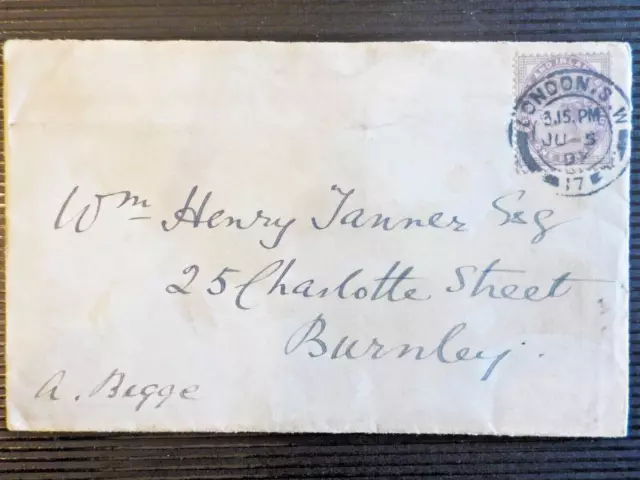 LONDON. S.W
3.15. PM
JU 5
17
Wm Henry Tanner Esq
25 Charlotte Street
Burnley.
A. Bigge